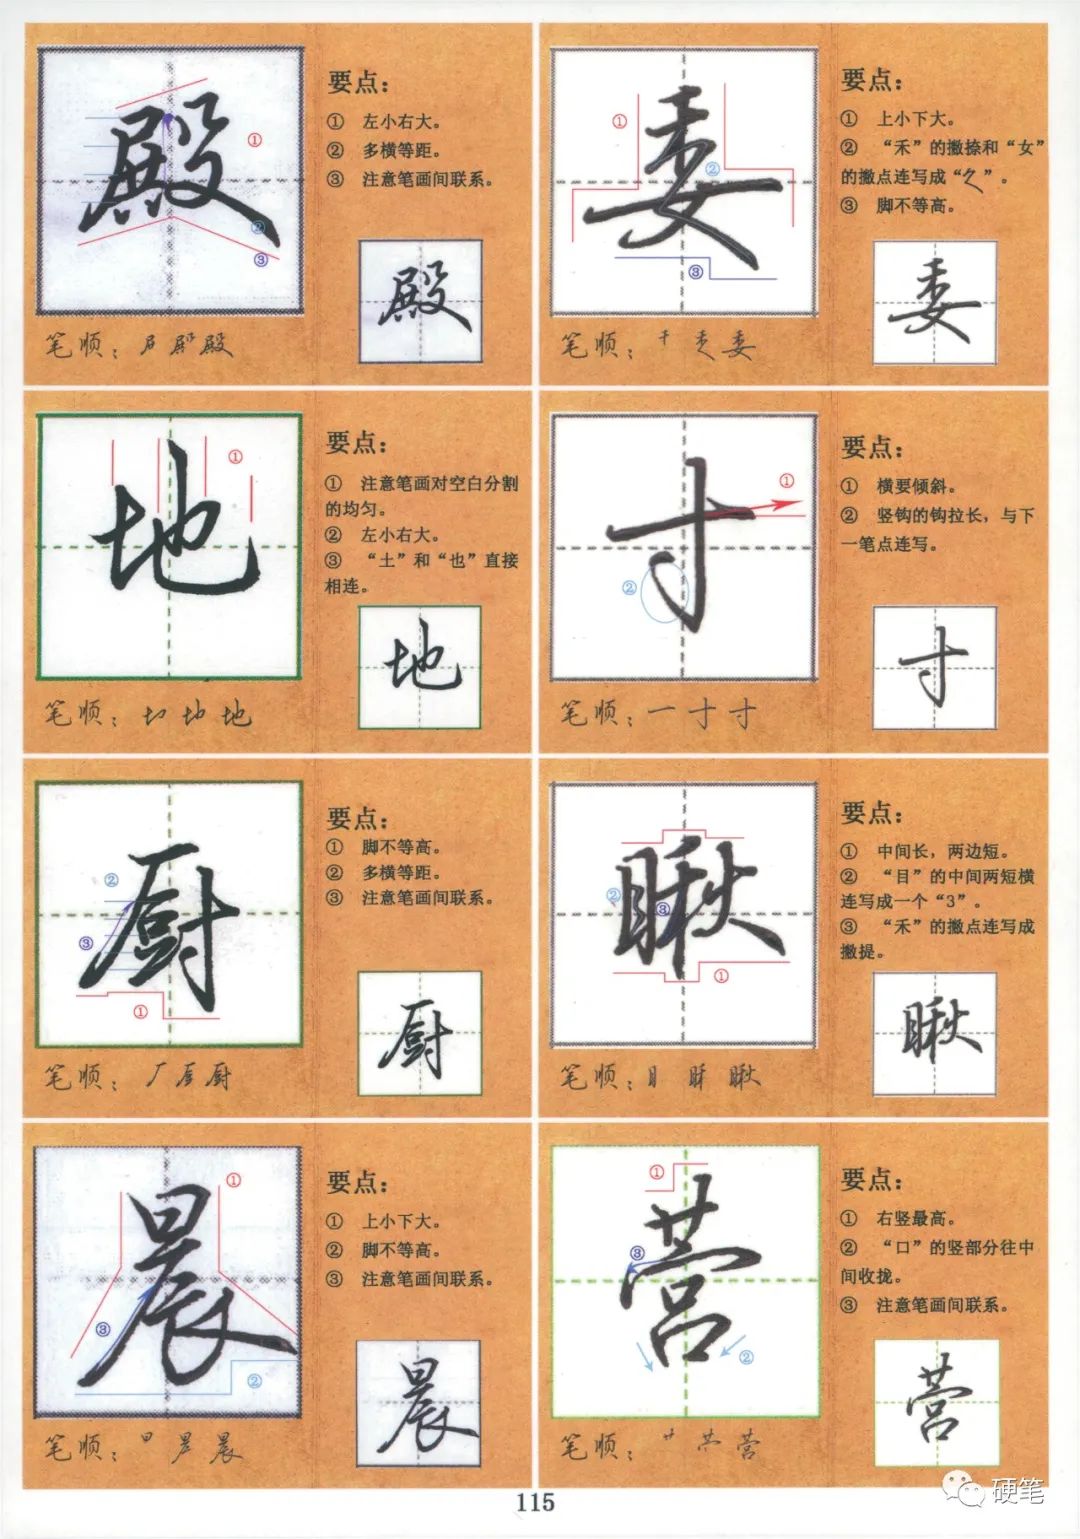 殿
要点：
① 左小右大。
② 多横等距。
③ 注意笔画间联系。
殿
笔顺：
殿
委
要点：
① 上小下大。
② “禾”的撇捺和“女”
的撇点连写成“ ”。
③ 脚不等高。
委
笔顺：
委
地
要点：
① 注意笔画对空白分割
的均匀。
② 左小右大。
③ “土”和“也”直接
相连。
地
笔顺：
地
寸
要点：
① 横要倾斜。
② 竖钩的钩拉长，与下
一笔点连写。
寸
笔顺：一 寸 寸
厨
要点：
① 脚不等高。
② 多横等距。
③ 注意笔画间联系。
厨
笔顺：厂 厨
瞅
要点：
① 中间长，两边短。
② “目”的中间两短横
连写成一个“3”。
③ “禾”的撇点连写成
撇提。
瞅
笔顺：目 瞅
晨
要点：
① 上小下大。
② 脚不等高。
③ 注意笔画间联系。
晨
笔顺：晨
营
要点：
① 右竖最高。
② “口”的竖部分往中
间收拢。
③ 注意笔画间联系。
营
笔顺：营
115
硬笔